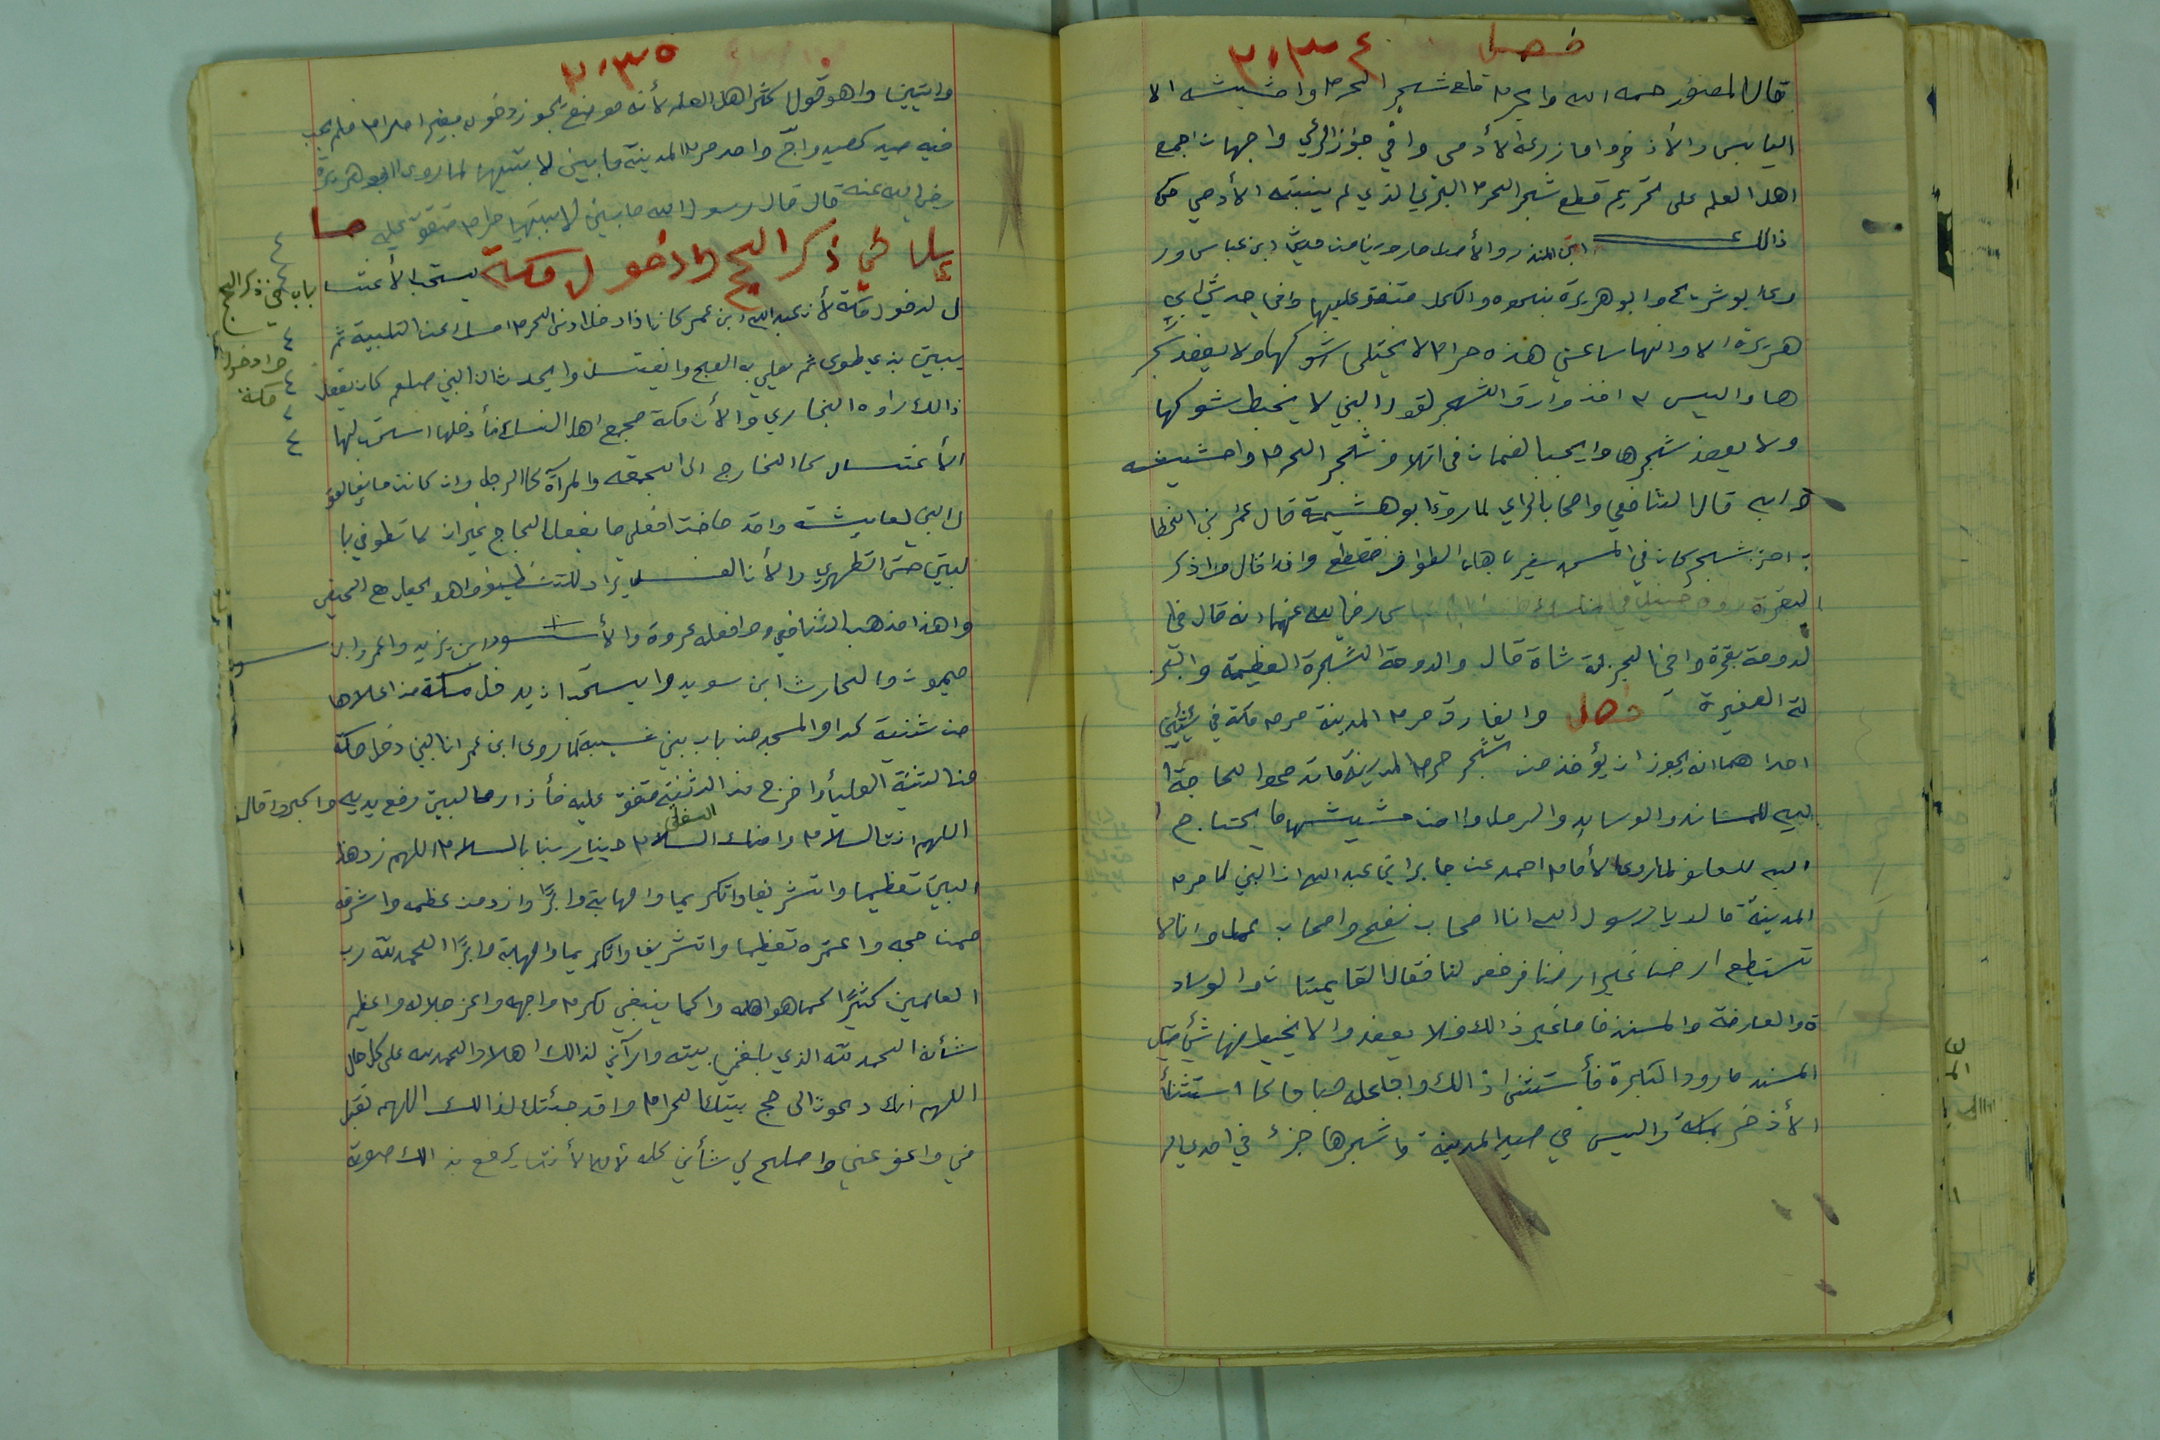 فصل ٢٠٣٤
قال المصنف رحمه الله وايحرم قلع شجر الحرم واحشيشه الا
اليابس والأذخر واما زرعه الأدمي وافي جواز الرعي واجهان اجمع
اهل العلم على تحريم قطع شجر الحرم البري الذي لم ينبته الأدمي حكى
ذالك ابن المنذر والأصل ما روينا من حديث ابن عباس ور
وى ابو شريح وابو هريرة بنحوه والكل متفق عليها وافي حديث ابي
هريرة الا وانها ساعتي هذه حرام لا يختلى شوكها ولا يعضد شجر
ها واليس له اخذ وارق الشجر لقول النبي لا يخبط شوكها
ولا يعضد شجرها وايجب الضمان في اتلاف شجر الحرم واحشيشه
وابه قال الشافعي واصحاب الراي لما روى ابو هشيمة قال عمر بن الخطا
ب امر بشجر كان في المسجد يضر باهل الطواف فقطع وافدا قال واذكر
البقرة رواه حنبل في المناسك
س رضي الله عنهما انه قال في ا
لدوحة بقرة وافي الجزلة شاة قال والدوحة الشجرة العظيمة والجز
لة الصغيرة فصل وايفارق حرم المدينة حرم مكة في شيئين
احداهما انه يجوز ان يؤخذ من شجر حرم المدينة ما تدعوا الحاجة ا
ليه للمساند والوسايد والرحل وامن حشيشها ما يحتاج ا
ليه للعلف لما روى الأمام احمد عن جابر ابن عبد الله ان النبي لما حرم
المدينة قالو يا رسول الله انا اصحاب نضح واصحاب عمل وانا لا
نستطع ارضا غير ارضنا فرخص لنا فقال القايمتان والوساد
ة والعارضة والمسند فاما غير ذالك فلا يعضد والا يخبط منها شيئ قيل
المسند مارود البكرة فأستثنى ذالك واجعله مباحا كا استثنأ
الأذخر بمكة واليس في صيد المدينة واشجرها جزأ في احدى الر
٢٠٣٥
وايتين واهو قول اكثر اهل العلم لأنه موضع يجوز دخوله بغير احرام فلم يجب
فيه صيد كصيد واجّ واحد حرم المدينة ما بين لابتيها لما روى ابو هريرة
رضي الله عنه قال قال رسول الله ما بين لابتيها حرام متفق عليه صا
باب في ذكر الحج وادخول مكة يستحب الأغتسا
باب في ذكر الحج
وادخول
مكة
ل لدخول مكة لأن عبد الله ابن عمر كان اذا دخل ادنى الحرم امسك عن التلبية ثم
يبيت بذي طوى ثم يصلي به الصبح وايغتسل وايحدث ان النبي صلعم كان يفعل
ذالك رواه البخاري والأن مكة مجمع اهل النسك فأذ دخلها استحب لها
الأغتسال كا الخارج الى الجمعه والمرأة كا الرجل وان كانت حايض لقو
ل النبي لعايشه واقد حاضت افعلي ما يفعل الحاج غير ان لا تطوفي با
لبيت حتى اتطهري والأن الغسل يراد للتنظيف واهو يحصل مع الحيض
واهذا مذهب الشافعي وافعله عروة والأسود ابن يزيد واعمرو ابن
ميمون والحارث ابن سويد وايستحب ان يدخل مكة من اعلاها
من ثنية كدا والمسجد من باب بني شيبة لما روى ابن عمر ان النبي دخل مكة
من الثنية العليأ واخرج من الثنية السفلى متفق عليه فأذا رءا البيت رفع يديه واكبر وا قال
اللهم انت السلام وامنك السلام حينا ربنا بالسلام اللهم زد هذا
البيت تعظيما واتشريفا واتكريما وامهابة وابرًا وازد من عظمه واشرفه
ممن حجه واعتمره تعظيما واتشريفا واتكريما وامهابة وابرًا الحمد لله رب
العالمين كثيرًا كما هو اهله واكما ينبغي لكرم واجهه واعز جلاله واعظيم
شأنه الحمد لله الذي بلغني بيته وارآني لذالك اهلا والحمد لله على كل حال
اللهم انك دعوت الى حج بيتك الحرام واقد جئتك لذالك اللهم تقبل
مني واعفو عني واصلح لي شأني كله لا اله الا انت يرفع بذالك صوته